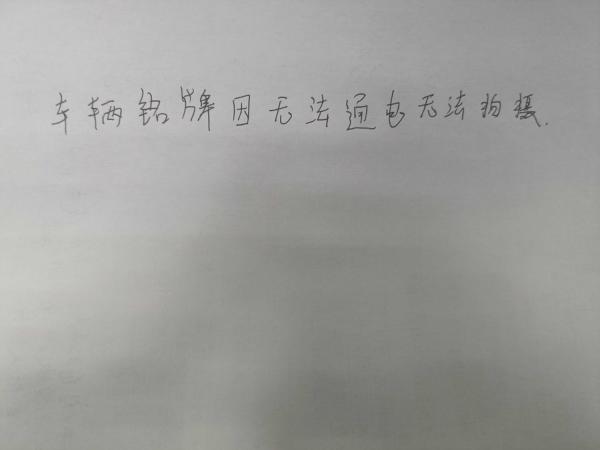 车辆铭牌因无法通电无法拍摄.